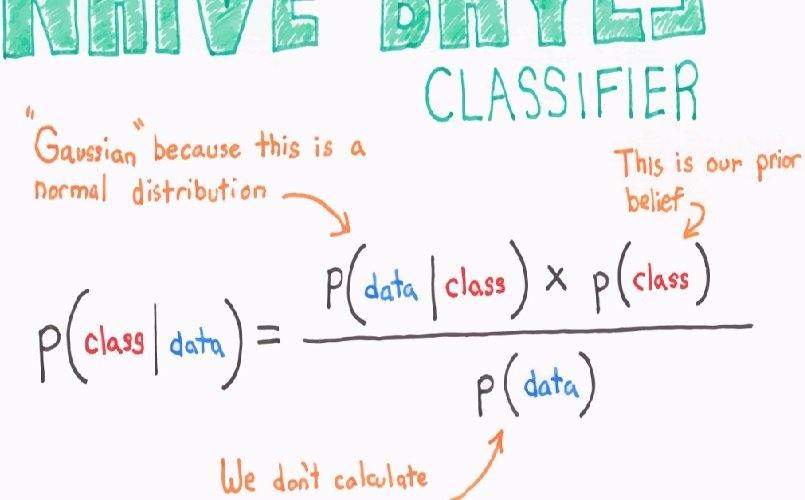 NAIVE BAYES
CLASSIFIER
"Gaussian" because this is a
normal distribution
This is our prior
belief
P(data | class) x p(class)
p(class | data) =
p(data)
We don't calculate